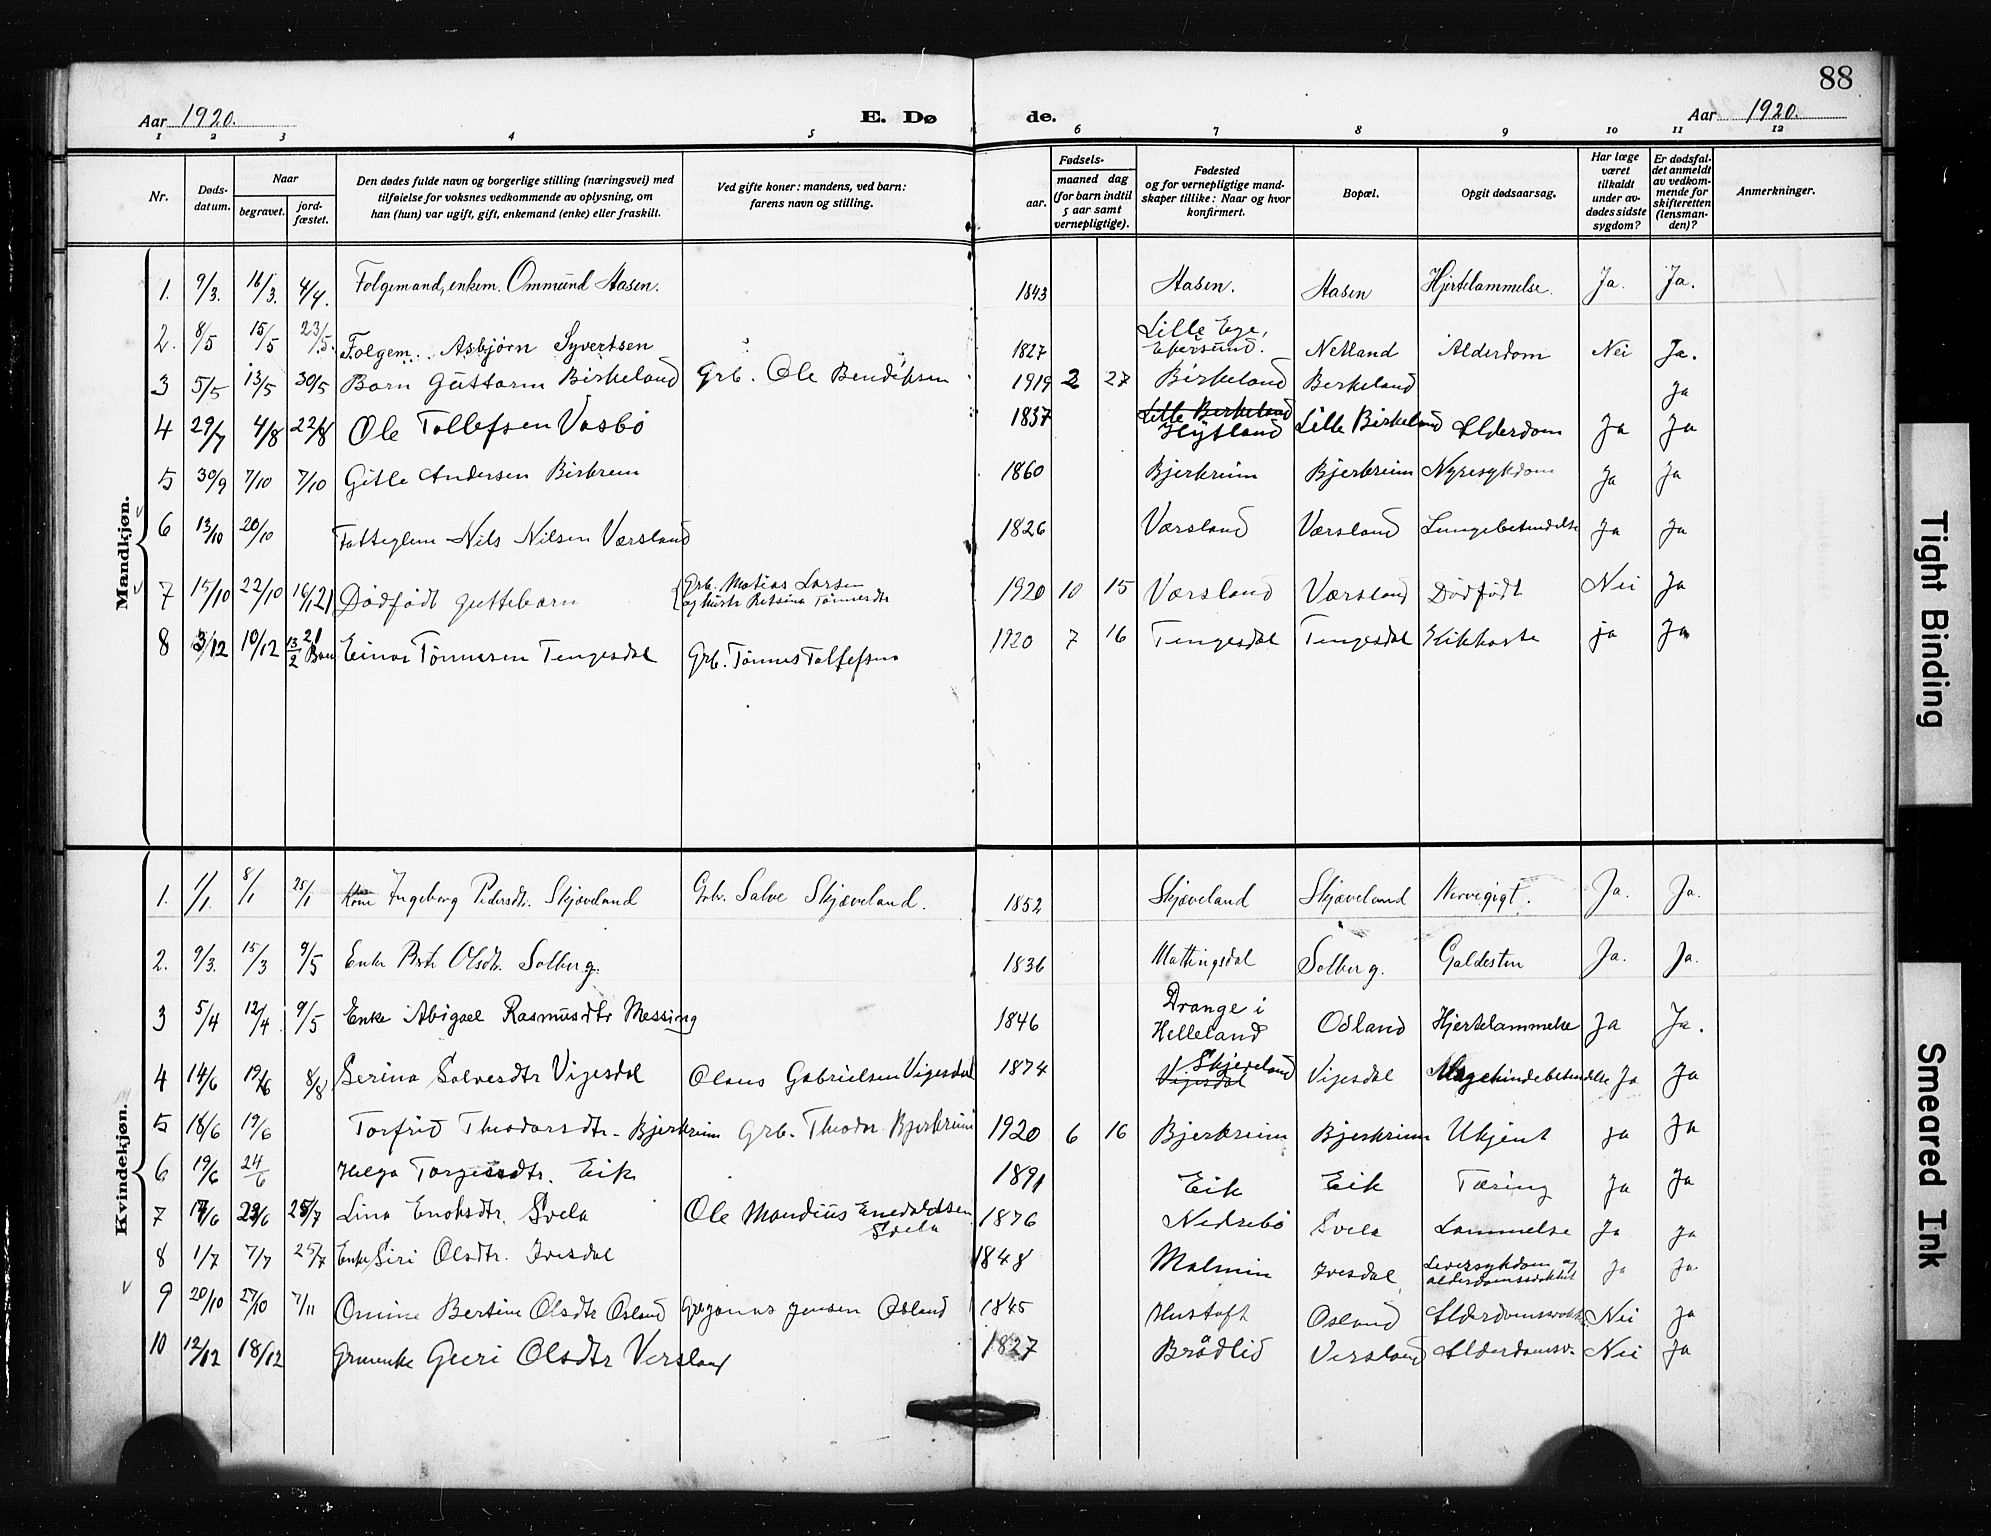 88
Aar 1920. E. Dø de. Aar 1920.
1 2 3 4 5 6 7 8 9 10 11 12
Nr. Døds-datum. Naar begravet. jord-fæstet. Den dødes fulde navn og borgerlige stilling (næringsvei) med tilføielse for voksnes vedkommende av oplysning, om han (hun) var ugift, gift, enkemand (enke) eller fraskilt. Ved gifte koner: mandens, ved barn: farens navn og stilling. Fødsels- aar. maaned dag (for barn indtil 5 aar samt vernepligtige). Fødested og for vernepligtige mand-skaper tillike: Naar og hvor konfirmert. Bopæl. Opgit dødsaarsag. Har læge været tilkaldt under av-dødes sidste sygdom? Er dødsfal-det anmeldt av vedkom-mende for skifteretten (lensman-den)? Anmerkninger.
Mandkjøn.
1. 9/3. 16/3. 4/4. Folgemand, enkem. Ommund Aasen. 1843 Aasen. Aasen Hjertelammelse. Ja. Ja.
2. 8/5 15/5 23/5. Folgem. Asbjørn Syvertsen 1827 Lille Ege, Ekersund. Netland Alderdom Nei Ja.
3 5/5 13/5 30/5 Barn Guttorm Birkeland Grb. Ole Bendiksen 1919 2 27 Birkeland Berkeland Ja
4 29/7 4/8 22/8 Ole Tollefsen Vasbø 1837 Lille Berkeland Hytland Lille Birkeland Alderdom Ja Ja
5 30/9 7/10 7/10 Gitle Andersen Birkrem 1860 Bjerkreim Bjerkreim Nyresykdom Ja Ja
6 13/10 20/10 Fattiglem Nils Nilsen Værsland 1826 Værsland Værsland Lungebetendelse Ja Ja
7 15/10 22/10 16/1 21 Dødfødt guttebarn Grb. Matias Larsen og hustr Betsina Tønnesdtr 1920 10 15 Værsland Værsland Dødfødt Nei Ja
8 3/12 10/12 13/2 21 Barn Einar Tønnesen Tengesdal Grb. Tønnes Tollefsen 1920 7 16 Tengesdal Tengesdal Kikhoste ja Ja
Kvindekjøn.
1. 1/1. 8/1 25/1 Kone Ingeborg Pedersdtr. Skjæveland Grb. Salve Skjæveland. 1852 Skjæveland Skjæveland Nervegigt. Ja. Ja.
2. 9/3. 15/3 9/5 Enke Berte Olsdtr. Solberg. 1836 Mattingsdal Solberg. Galdesten Ja. Ja.
3 5/4 12/4 9/5 Enke Abigael Rasmusdtr Messing 1846 Drange i Helleland Odland Hjertelammelse Ja Ja.
4 14/6 19/6 8/8 Serina Salvesdtr Vigesdal Olaus Gabrielsen Vigesdal 1874 Skjeveland Vigesdal Vigesdal Ja Ja
5 18/6 19/6 Torfrid Theodorsdtr. Bjerkreim Grb. Theodor Bjerkreim 1920 6 16 Bjerkreim Bjerkreim Ukjent ja Ja
6 19/6 24/6 Helga Torgersdtr. Eik 1891 Eik Eik Tæring Ja Ja
7 17/6 23/6 25/7 Lina Enoksdtr. Svela Ole Mandius Enevaldsen Svela 1876 Nedrebø Svela Lammelse Ja ja
8 1/7 7/7 25/7 Enke Siri Olsdtr. Ivesdal 1848 Malmin Ivesdal Leversykdom og alderdomssvakhet Ja Ja
9 20/10 27/10 7/11 Omine Bertine Olsdtr Osland Jonas Jensen Osland 1845 Hustoft Osland Nei Ja
10 12/12 18/12 Grmenke Guri Olsdtr Versland 1827 Brådlid Versland Alderdomsv. Nei Ja
Tight Binding
Smeared Ink